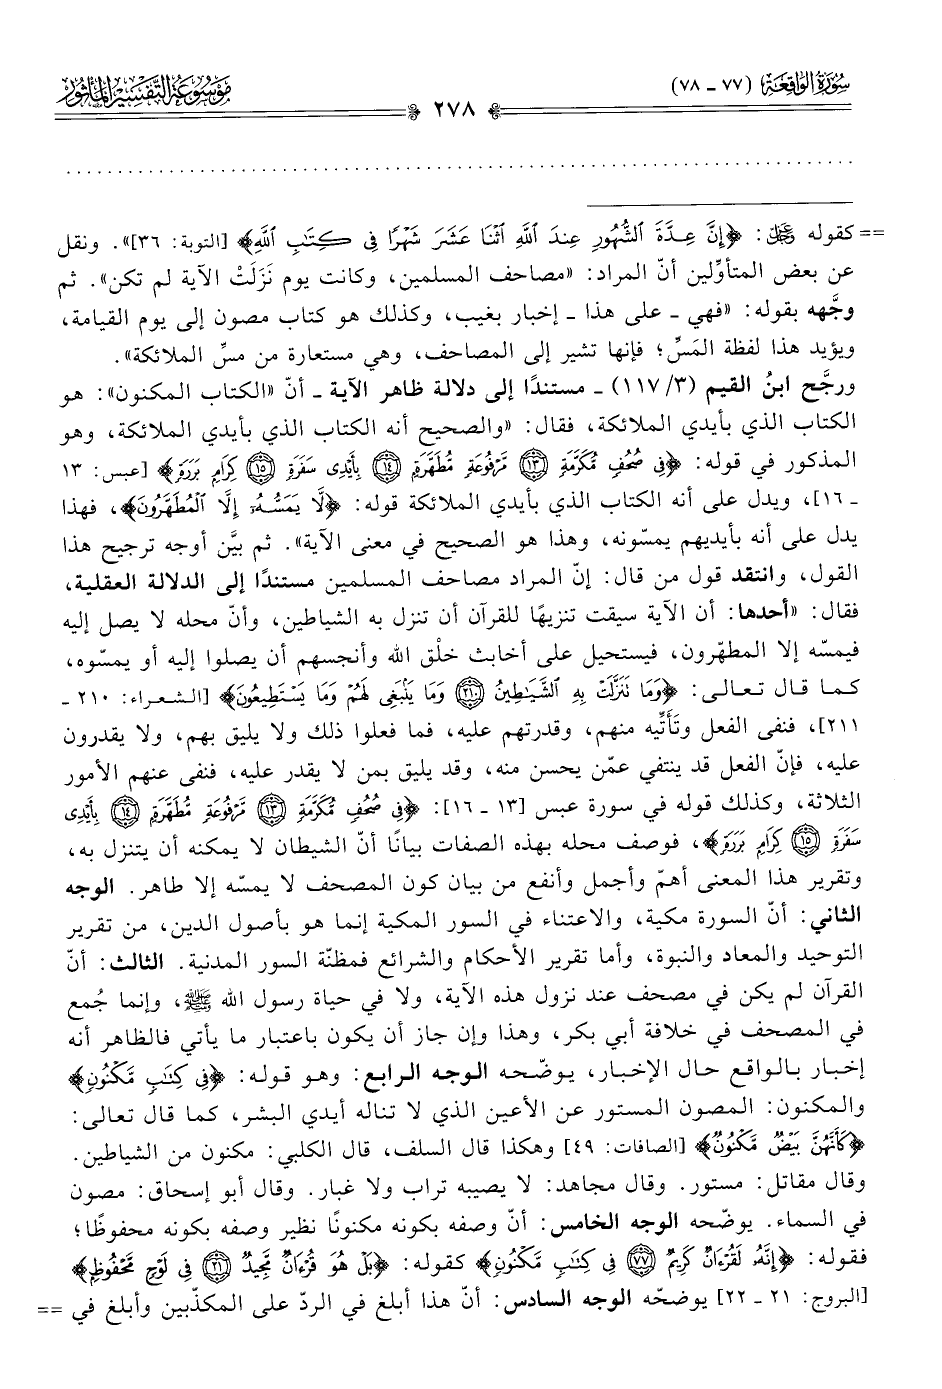 سورة الواقعة (٧٧ - ٧٨)
موسوعة التفسير المأثور
٢٧٨
== كقوله ﷻ: ﴿إِنَّ عِدَّةَ الشُّهُورِ عِندَ اللَّهِ اثْنَا عَشَرَ شَهْرًا فِي كِتَابِ اللَّهِ﴾ [التوبة: ٣٦]». ونقل
عن بعض المتأوِّلين أنّ المراد: «مصاحف المسلمين، وكانت يوم نَزَلَتْ الآية لم تكن». ثم
وجَّهه بقوله: «فهي ـ على هذا ـ إخبار بغيب، وكذلك هو كتاب مصون إلى يوم القيامة،
ويؤيد هذا لفظة المَسِّ؛ فإنها تشير إلى المصاحف، وهي مستعارة من مسِّ الملائكة».
ورجَّح ابنُ القيم (٣/ ١١٧) ـ مستندًا إلى دلالة ظاهر الآية ـ أنّ «الكتاب المكنون»: هو
الكتاب الذي بأيدي الملائكة، فقال: «والصحيح أنه الكتاب الذي بأيدي الملائكة، وهو
المذكور في قوله: ﴿فِي صُحُفٍ مُّكَرَّمَةٍ ١٣ مَّرْفُوعَةٍ مُّطَهَّرَةٍ ١٤ بِأَيْدِي سَفَرَةٍ ١٥ كِرَامٍ بَرَرَةٍ﴾ [عبس: ١٣
ـ ١٦]، ويدل على أنه الكتاب الذي بأيدي الملائكة قوله: ﴿لَّا يَمَسُّهُ إِلَّا الْمُطَهَّرُونَ﴾، فهذا
يدل على أنه بأيديهم يمسّونه، وهذا هو الصحيح في معنى الآية». ثم بيَّن أوجه ترجيح هذا
القول، وانتقد قول من قال: إنّ المراد مصاحف المسلمين مستندًا إلى الدلالة العقلية،
فقال: «أحدها: أن الآية سيقت تنزيهًا للقرآن أن تنزل به الشياطين، وأنّ محله لا يصل إليه
فيمسّه إلا المطهّرون، فيستحيل على أخابث خلْق الله وأنجسهم أن يصلوا إليه أو يمسّوه،
كما قال تعالى: ﴿وَمَا تَنَزَّلَتْ بِهِ الشَّيَاطِينُ ٢١٠ وَمَا يَنبَغِي لَهُمْ وَمَا يَسْتَطِيعُونَ﴾ [الشعراء: ٢١٠ ـ
٢١١]، فنفى الفعل وتَأَتِّيه منهم، وقدرتهم عليه، فما فعلوا ذلك ولا يليق بهم، ولا يقدرون
عليه، فإنّ الفعل قد ينتفي عمّن يحسن منه، وقد يليق بمن لا يقدر عليه، فنفى عنهم الأمور
الثلاثة، وكذلك قوله في سورة عبس [١٣ ـ ١٦]: ﴿فِي صُحُفٍ مُّكَرَّمَةٍ ١٣ مَّرْفُوعَةٍ مُّطَهَّرَةٍ ١٤ بِأَيْدِي
سَفَرَةٍ ١٥ كِرَامٍ بَرَرَةٍ﴾، فوصف محله بهذه الصفات بيانًا أنّ الشيطان لا يمكنه أن يتنزل به،
وتقرير هذا المعنى أهمّ وأجمل وأنفع من بيان كون المصحف لا يمسّه إلا طاهر. الوجه
الثاني: أنّ السورة مكية، والاعتناء في السور المكية إنما هو بأصول الدين، من تقرير
التوحيد والمعاد والنبوة، وأما تقرير الأحكام والشرائع فمظنّة السور المدنية. الثالث: أنّ
القرآن لم يكن في مصحف عند نزول هذه الآية، ولا في حياة رسول الله ﷺ، وإنما جُمع
في المصحف في خلافة أبي بكر، وهذا وإن جاز أن يكون باعتبار ما يأتي فالظاهر أنه
إخبار بالواقع حال الإخبار، يوضّحه الوجه الرابع: وهو قوله: ﴿فِي كِتَابٍ مَّكْنُونٍ﴾
والمكنون: المصون المستور عن الأعين الذي لا تناله أيدي البشر، كما قال تعالى:
﴿كَأَنَّهُنَّ بَيْضٌ مَّكْنُونٌ﴾ [الصافات: ٤٩] وهكذا قال السلف، قال الكلبي: مكنون من الشياطين.
وقال مقاتل: مستور. وقال مجاهد: لا يصيبه تراب ولا غبار. وقال أبو إسحاق: مصون
في السماء. يوضّحه الوجه الخامس: أنّ وصفه بكونه مكنونًا نظير وصفه بكونه محفوظًا؛
فقوله: ﴿إِنَّهُ لَقُرْآنٌ كَرِيمٌ ٧٧ فِي كِتَابٍ مَّكْنُونٍ﴾ كقوله: ﴿بَلْ هُوَ قُرْآنٌ مَّجِيدٌ ٢١ فِي لَوْحٍ مَّحْفُوظٍ﴾
[البروج: ٢١ ـ ٢٢] يوضحّه الوجه السادس: أنّ هذا أبلغ في الردّ على المكذّبين وأبلغ في ==